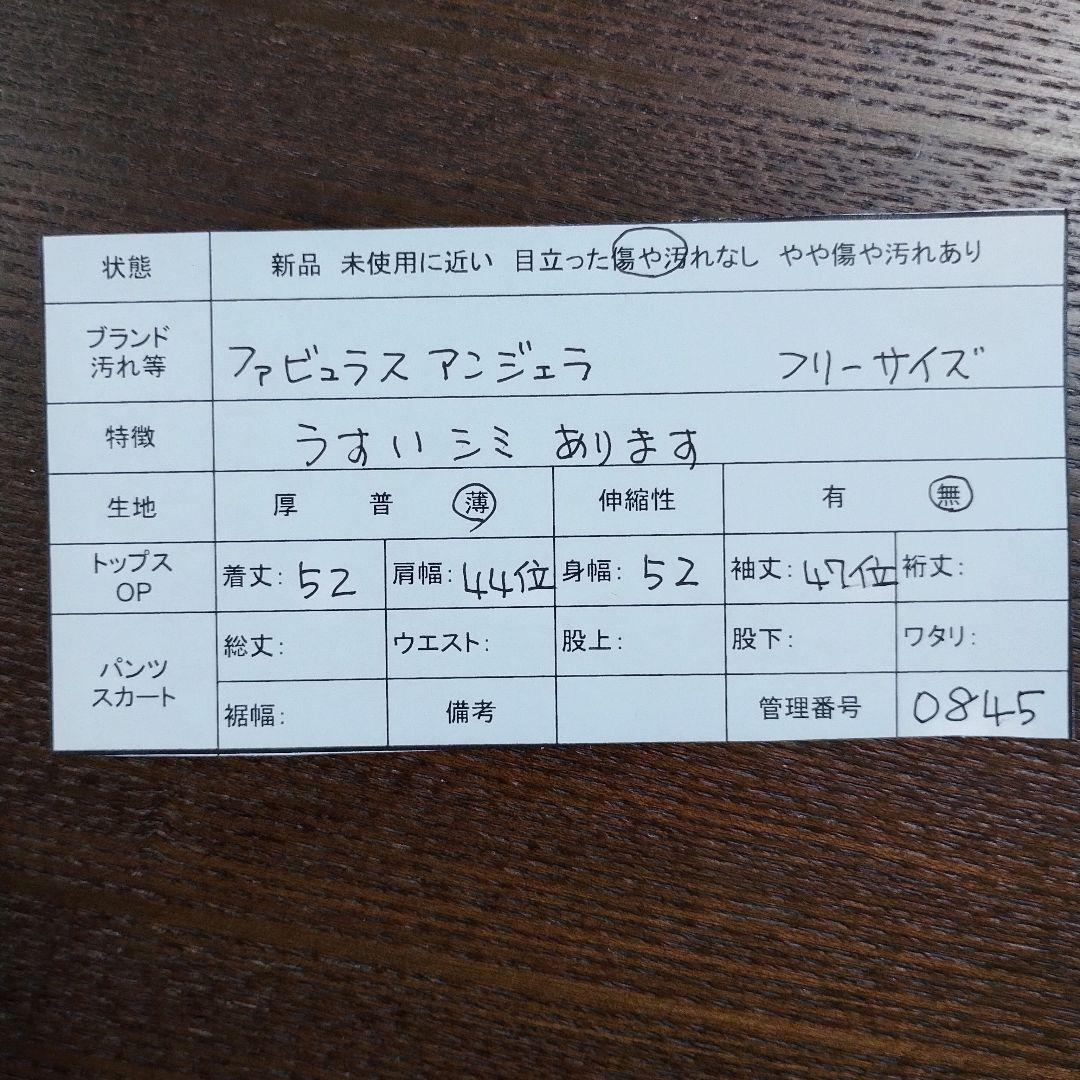 状態 新品 未使用に近い 目立った傷や汚れなし やや傷や汚れあり
ブランド
汚れ等 ファビュラス アンジェラ フリーサイズ
特徴 うすい シミ あります
生地 厚 普 薄 伸縮性 有 無
トップス
OP 着丈: 52 肩幅: 44位 身幅: 52 袖丈: 47位 裄丈:
パンツ
スカート 総丈: ウエスト: 股上: 股下: ワタリ:
裾幅: 備考 管理番号 0845